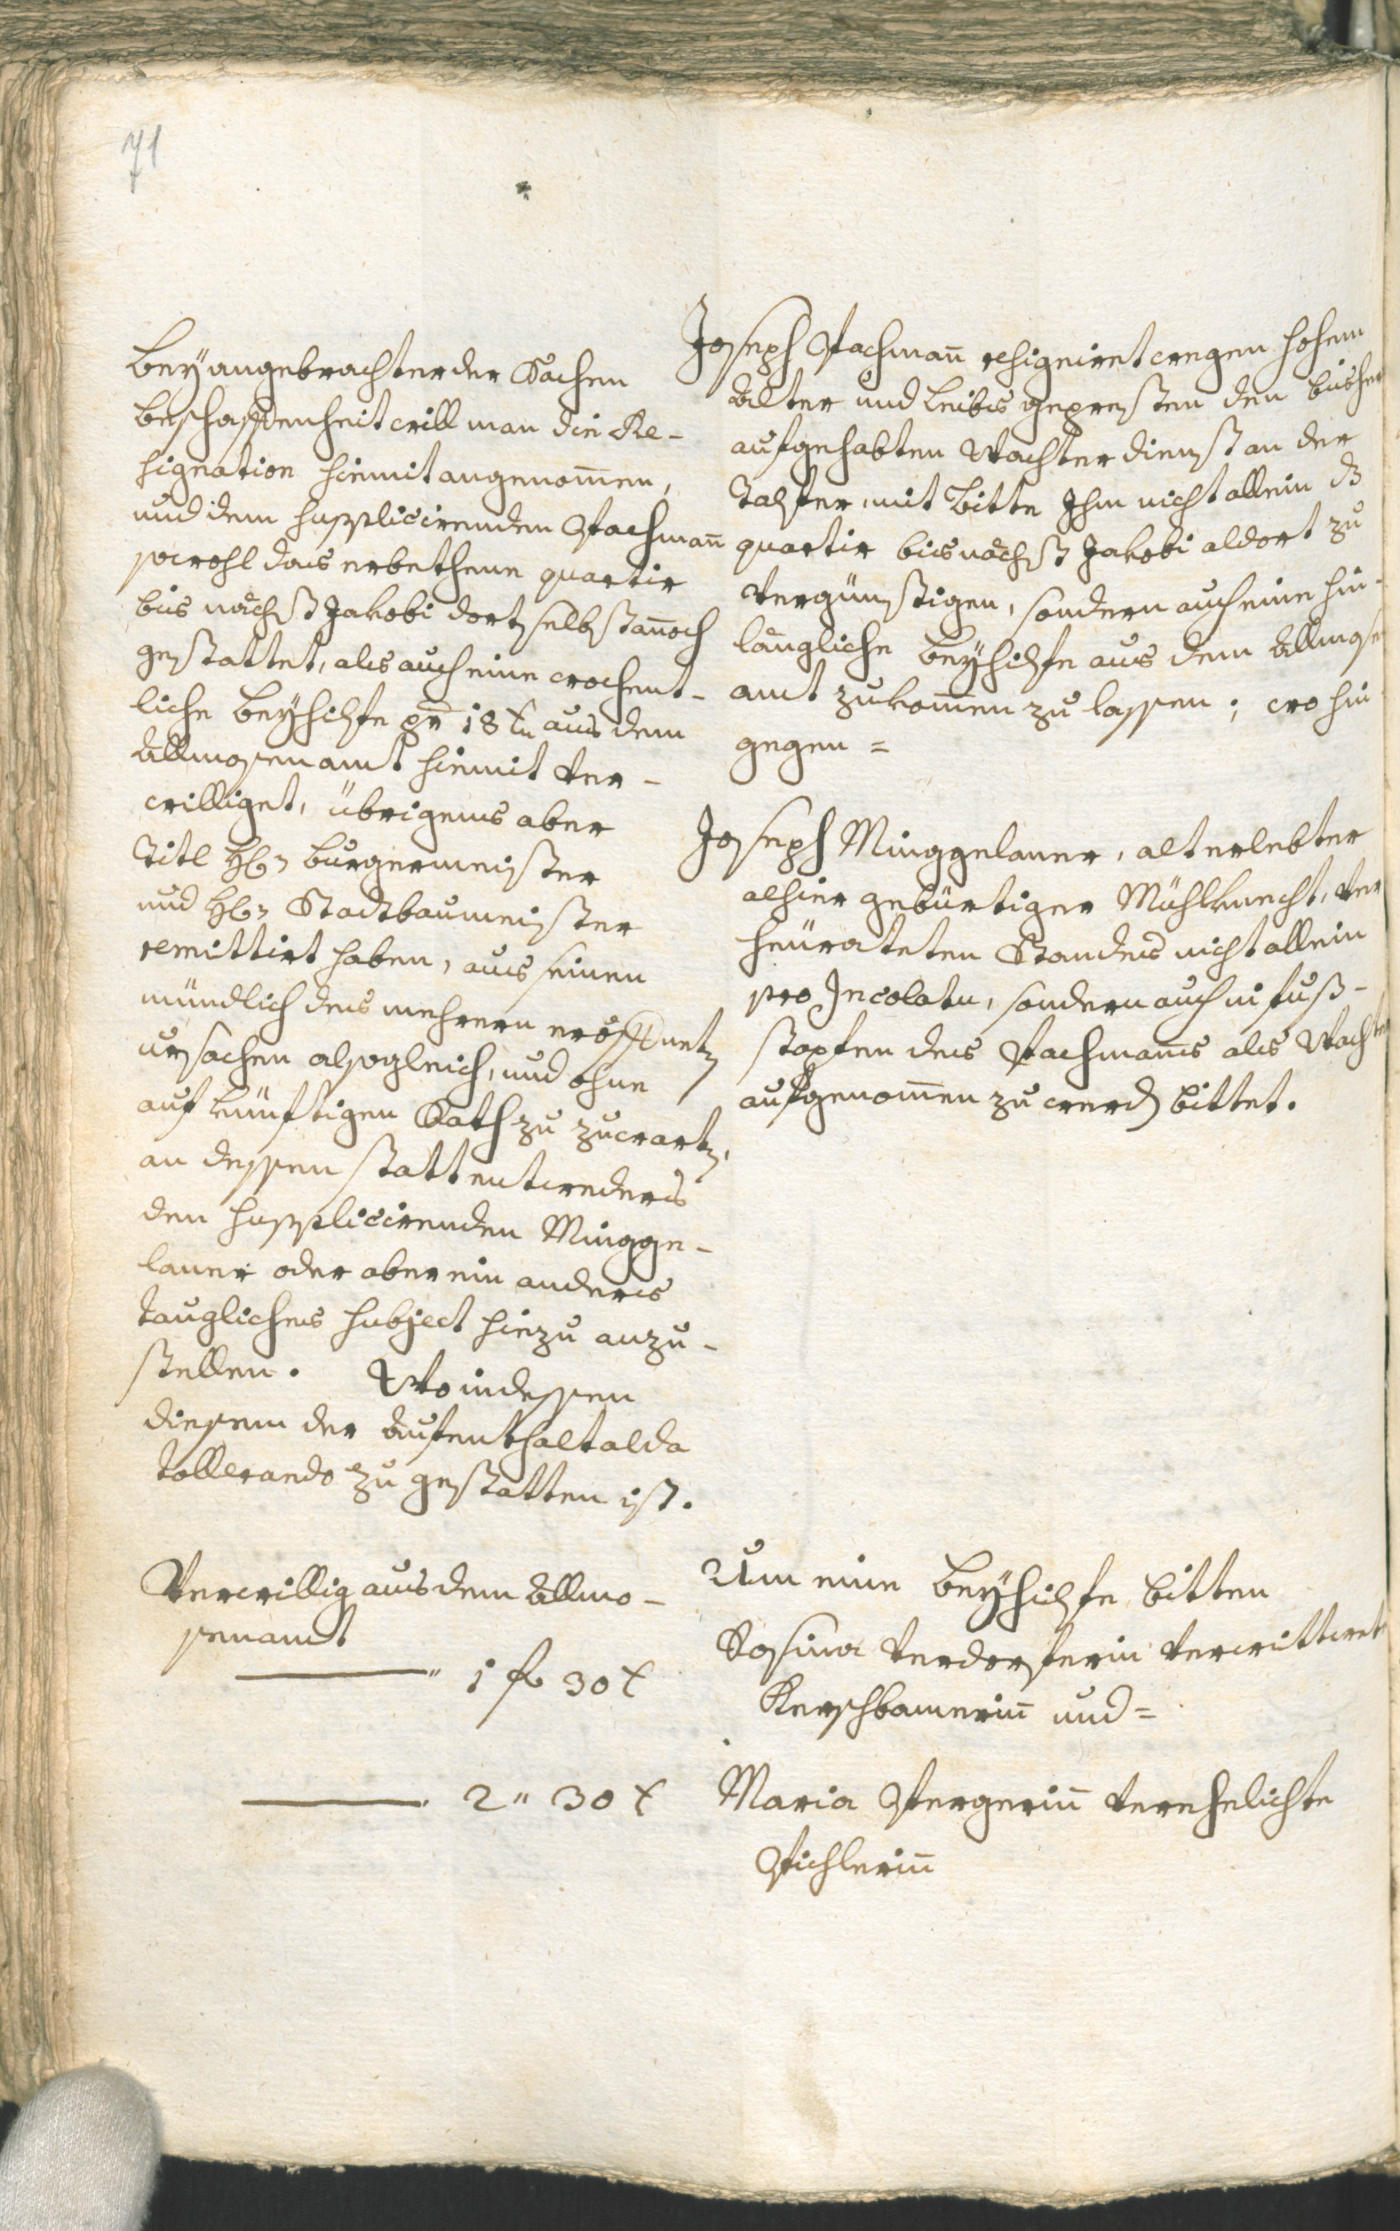 71
Bey angebrachter der Sachen
beschaffenheit will man die Re-
signation hiemit angenom̄en,
und dem supplicirenden Pachman̄
sowohl das erbethene quartir
bis nächst Jakobi dortselbst an̄och
gestattet, als auch eine wochent-
liche Beyhilfe pr 18 xr aus dem
Allmosenamt hiemit ver-
williget, übrigens aber
Titl H: Burgermeister
und H: Stadtbaumeister
remittirt haben, aus seinen
mündlich des mehrern eröffnetn
ursachen alsogleich, und ohne
auf künftigen Rath zu zuwartn,
an dessen statt entweders
den supplicirenden Mingge-
lauer oder aber ein anders
taugliches subject hiezu anzu-
stellen. Wo indessen
diesem der Aufenthalt alda
tollerando zu gestatten ist.
Verwillig aus dem Allmo-
senamt
1 f 30 x
2 " 30 x
Joseph Pachman̄ resignirt wegen hohem
Alter und Leibs gepresten den bisher
aufgehabten Wachter dienst an der
Talfer, mit Bitte Ihm nicht allein ds
quartir bis nächst Jakobi aldort zu
vergünstigen, sondern auch eine hin-
längliche Beyhilfe aus dem Allmosen
amt zukom̄en zu lassen; wo hin
gegen =
Joseph Minggelauer, alt erlebter
alhier gebürtiger Mühlknecht, ver
heürateten Standes nicht allein
pro Incolatu, sondern auch in fuß-
stapfen des Pachman̄s als Wachter
aufgenom̄en zu werdn bittet.
Um eine Beyhilfe bitten
Rosina Verdorferin verwittwete
Kerschbamerin̄ und =
Maria Pergerin̄ verehelichte
Pichlerin̄